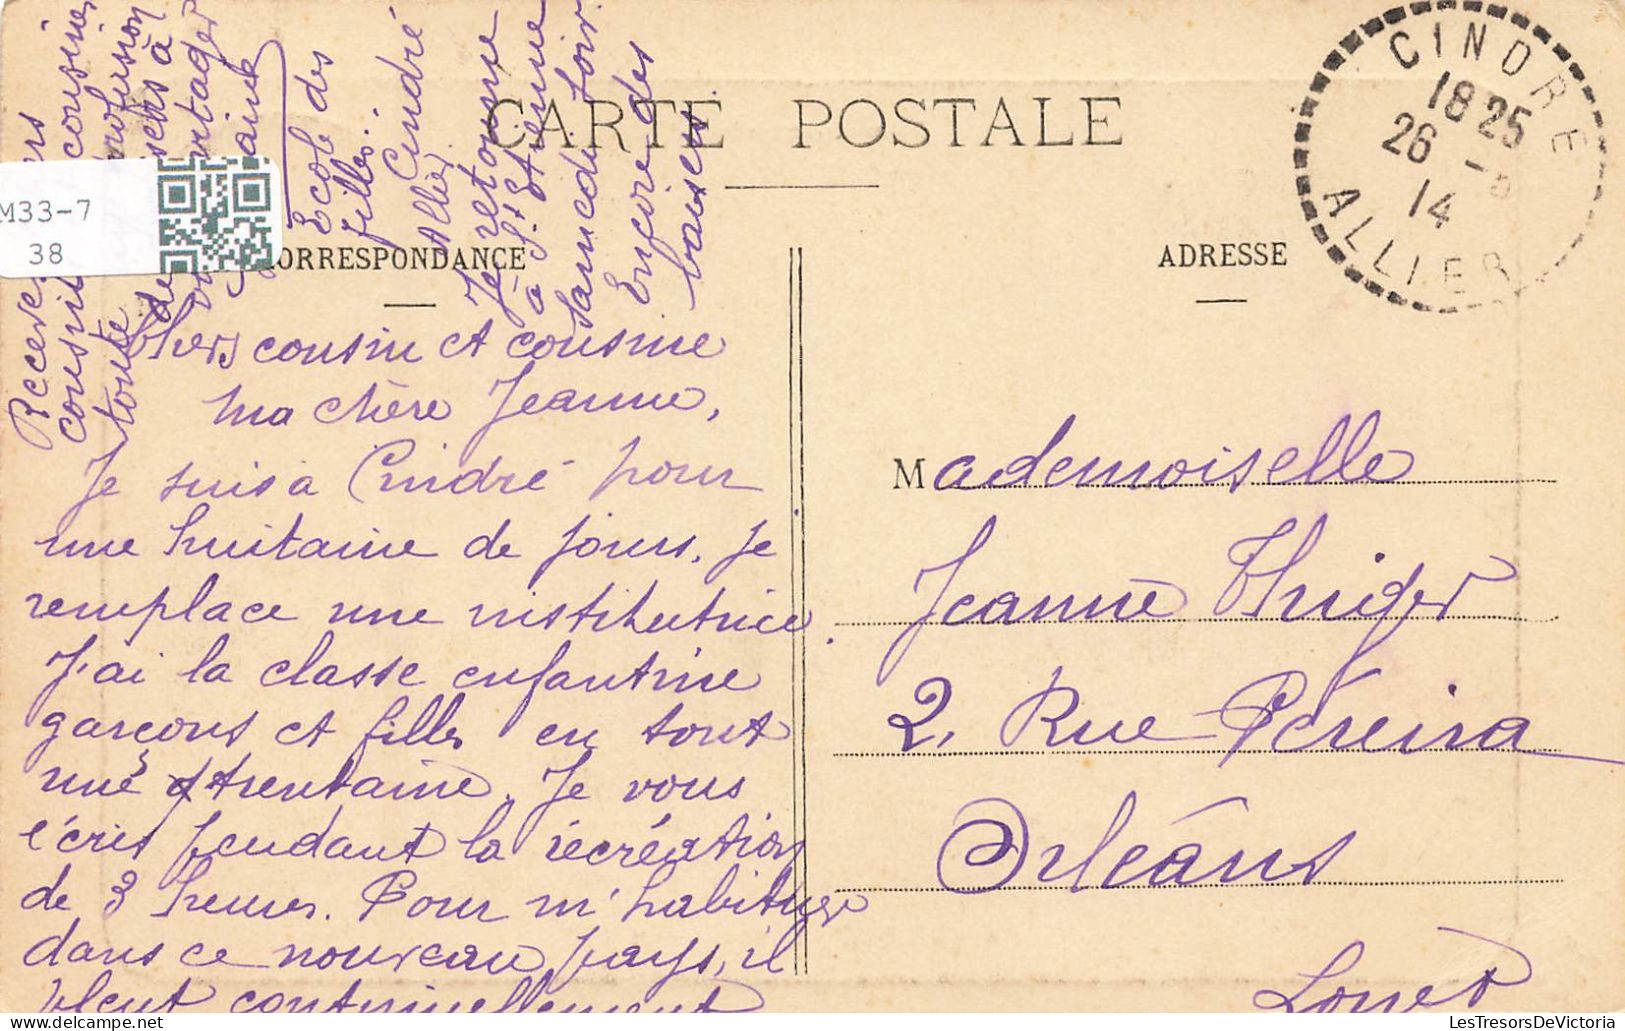 CARTE POSTALE
CORRESPONDANCE
ADRESSE
CINDRE
18 25
26 -5
14
ALLIER
M33-7
38
Chers cousin et cousine
ma chère Jeanne,
Je suis à Cindré pour
une huitaine de jours, je
remplace une institutrice.
J'ai la classe enfantine
garçons et filles en tout
une trentaine. Je vous
écris pendant la récréation
de 3 heures. Pour m'habituer
dans ce nouveau pays, il
pleut continuellement
Recevez
cousin cousine
toute profusion
de baisers à
partager
Jeanne
École des
filles.
Cindré
Allier
Je retourne
à St Etienne
Samedi soir.
Encore des
baisers.
Mademoiselle
Jeanne Thiger
2, Rue Péreira
Orléans
Loiret
LesTresorsDeVictoria